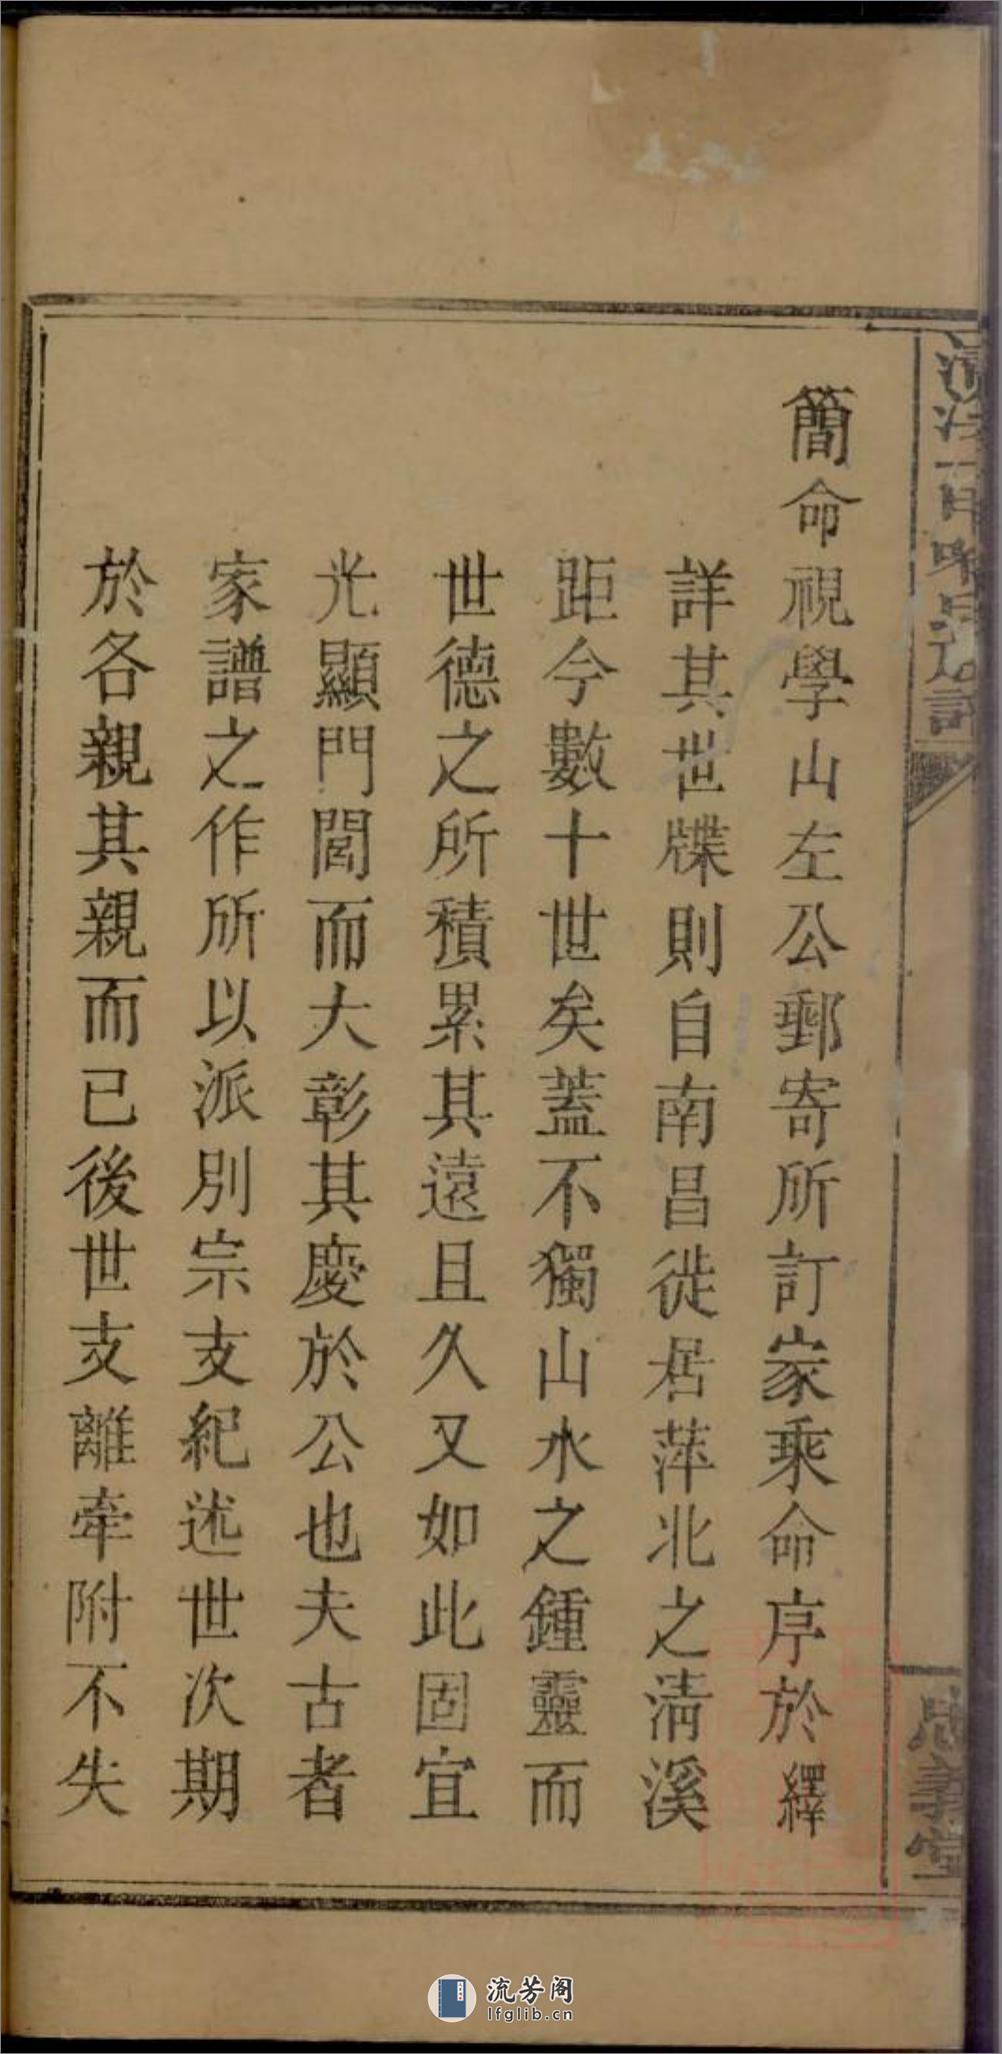 簡命視學山左公郵寄所訂家乘命序於繹
詳其世牒則自南昌徙居萍北之淸溪
距今數十世矣蓋不獨山水之鍾靈而
世德之所積累其遠且久又如此固宜
光顯門閭而大彰其慶於公也夫古者
家譜之作所以派別宗支紀述世次期
於各親其親而已後世支離牽附不失
義堂
流芳阁
lfglib.cn